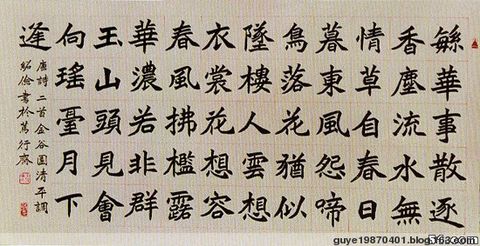 緐華事散逐
香塵流水無
情草自春日
暮東風怨啼
鳥落花猶似
墜樓人雲想
衣裳花想容
春風拂檻露
華濃若非群
玉山頭見會
向瑤臺月下
逢
唐詩二首金谷園清平調
紹儉書於萬行齋
guye19870401.blog.163.com